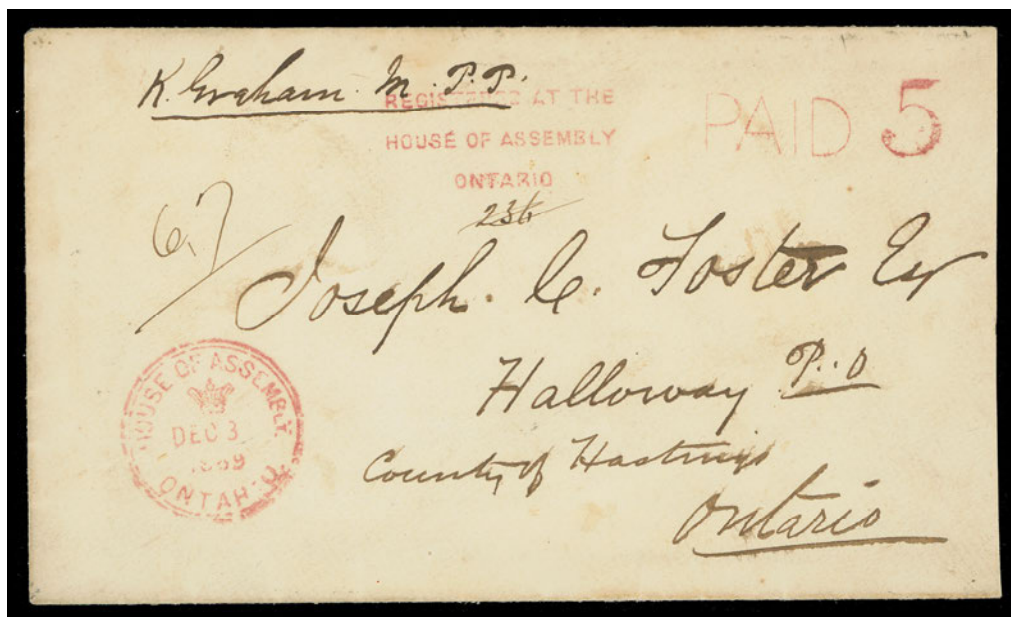 K. Graham. M. P. P.
REGISTERED AT THE
HOUSE OF ASSEMBLY
ONTARIO
PAID 5
236
67
Joseph. C. Foster Esq
Halloway P. O
County of Hastings
Ontario
HOUSE OF ASSEMBLY.
DEC 3
1869
ONTARIO